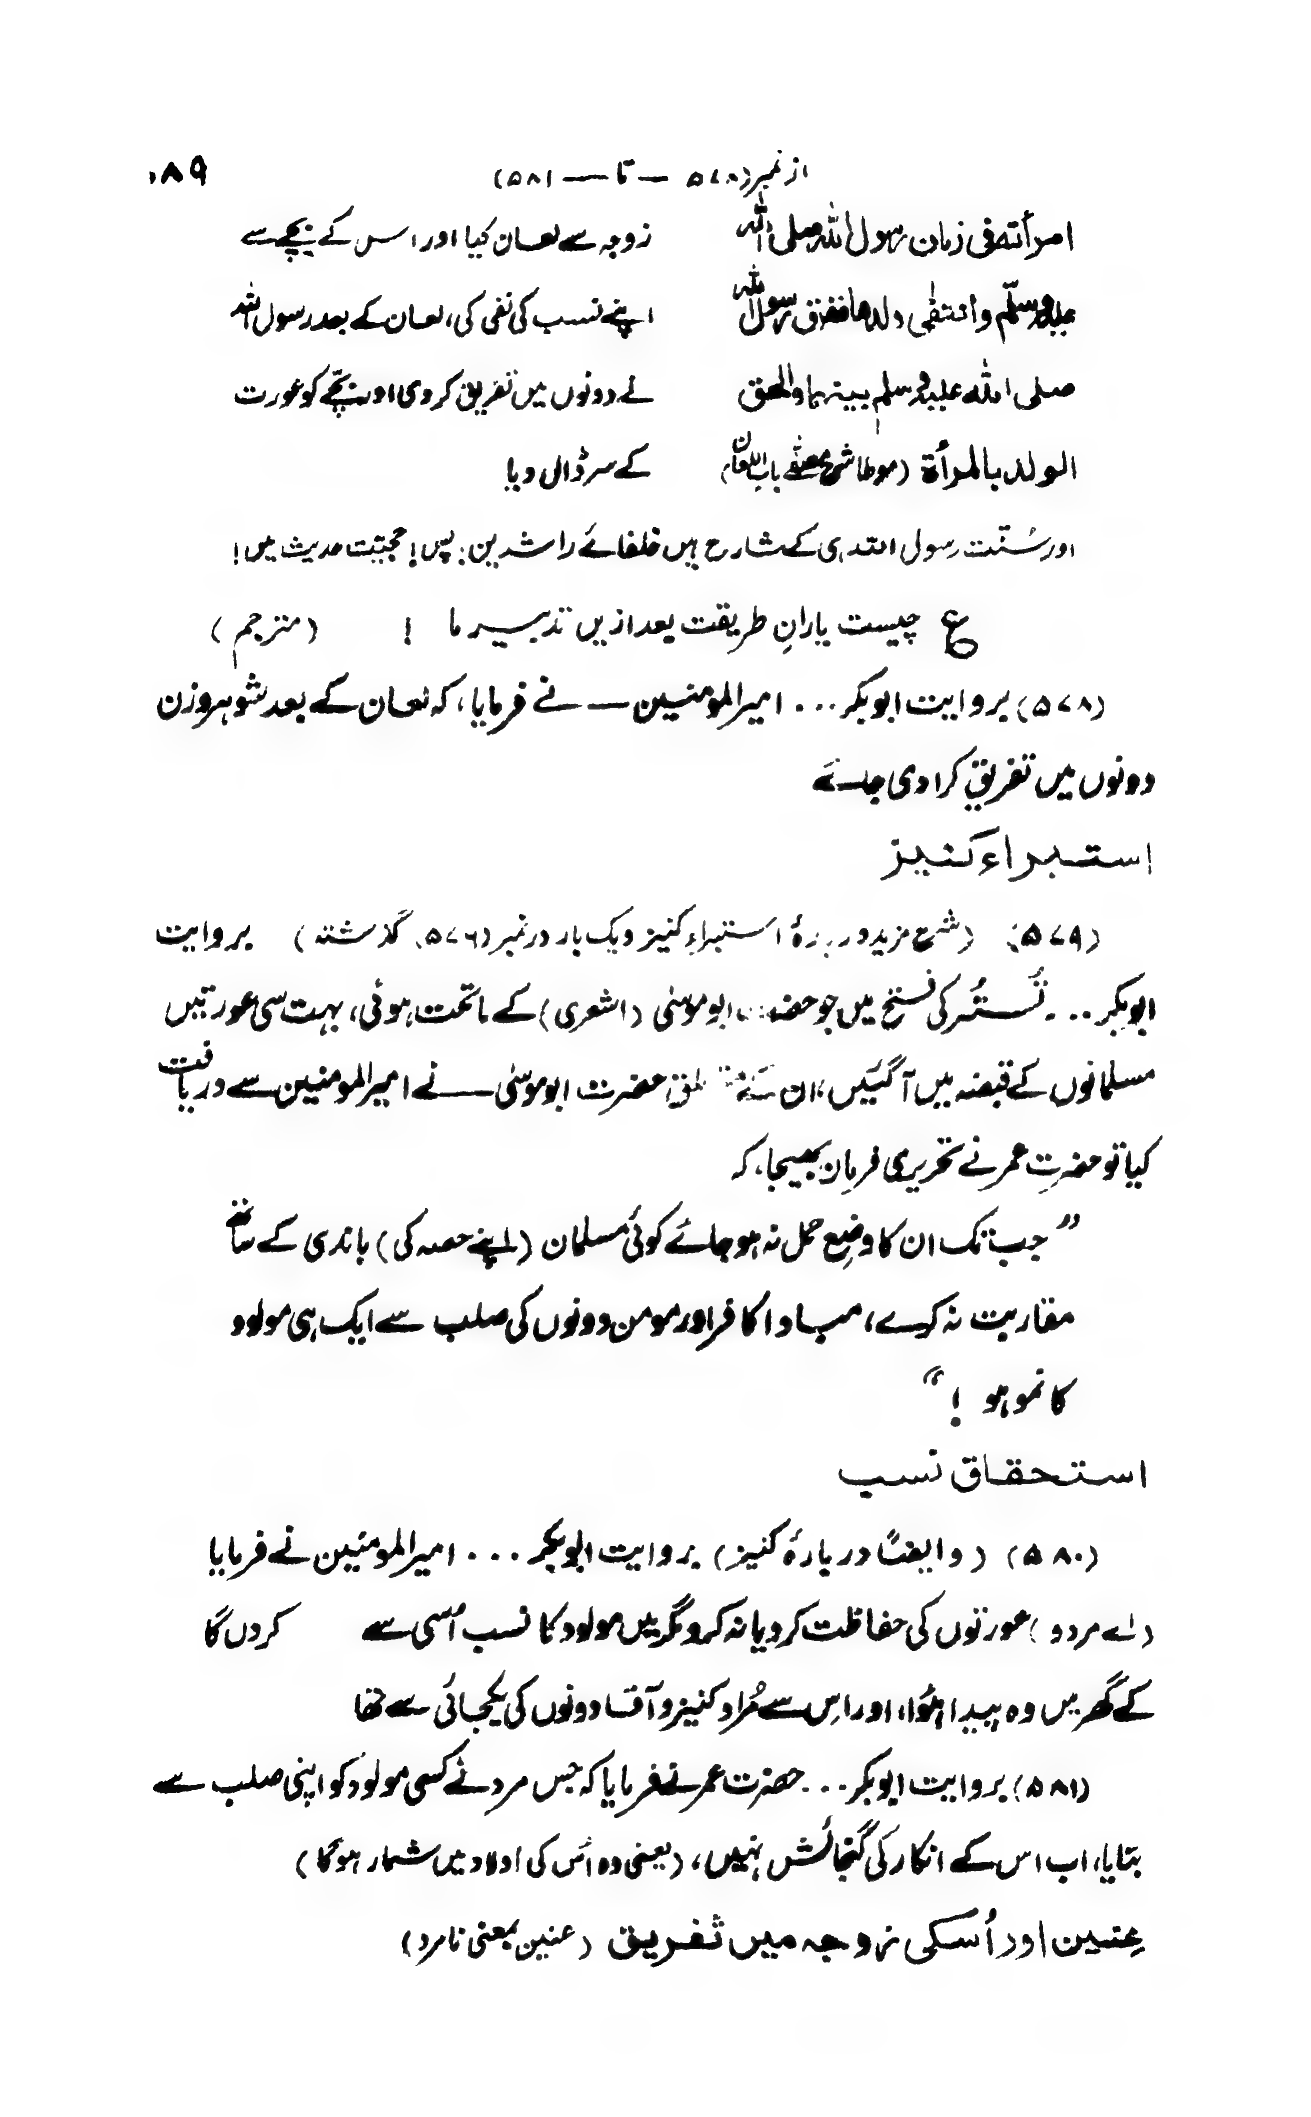 از نمبر (۵۷۸ — تا — ۵۸۱) ۱۸۹
امرأته فی زمان رسول اللہ صلی اللہ زوجہ سے لعان کیا اور اس کے بچے سے
علیہ وسلّم وانتفٰی ولدھا ففرق رسول اللہ اپنے نسب کی نفی کی، لعان کے بعد رسول اللہ
صلی اللہ علیہ وسلم بینہما والحق نے دونوں میں تفریق کر دی اور بچّے کو عورت
الولد بالمرأة (موطا شرح مصفّٰے باب اللعان) کے سر ڈال دیا
اور سُنّت رسول اللہ ہی کے شارح ہیں خلفائے راشدین: پس! حجیّت حدیث میں!
ع چیست یارانِ طریقت بعد ازیں تدبیر ما ! (مترجم)
(۵۷۸) بروایت ابوبکر ... امیر المومنین — نے فرمایا، کہ لعان کے بعد شوہر وزن
دونوں میں تفریق کرا دی جائے
استبراء کنیز
(۵۷۹) (شرح مزید در بارۂ استبراءِ کنیز ویک بار در نمبر (۵۷۶) گذشتہ) بروایت
ابوبکر ... تُستُر کی فتح میں جو حضرت ابو موسیٰ (اشعری) کے ماتحت ہوئی، بہت سی عورتیں
مسلمانوں کے قبضہ میں آگئیں، ان کے متعلق حضرت ابو موسیٰ — نے امیر المومنین سے دریافت
کیا تو حضرتِ عمر نے تحریری فرمان بھیجا، کہ
”جب تک ان کا وضعِ حمل نہ ہو جائے کوئی مسلمان (اپنے حصہ کی) باندی کے ساتھ
مقاربت نہ کرے، مبادا کافر اور مومن دونوں کی صلب سے ایک ہی مولود
کا نمو ہو !“
استحقاق نسب
(۵۸۰) (وایضًا در بارۂ کنیز) بروایت ابوبکر ... امیر المومنین نے فرمایا
(اے مردو) عورتوں کی حفاظت کر دیا نہ کرو مگر میں مولود کا نسب اُسی سے کردں گا
کے گھر میں وہ پیدا ہُوا، اور اس سے مُراد کنیز و آقا دونوں کی یکجائی سے تھا
(۵۸۱) بروایت ابوبکر ... حضرت عمر نے فرمایا کہ جس مرد نے کسی مولود کو اپنی صلب سے
بتایا، اب اس کے انکار کی گنجائش نہیں، (یعنی وہ اُس کی اولاد میں شمار ہوگا)
عِنّین اور اُسکی زوجہ میں تفریق (عنین بمعنی نامرد)